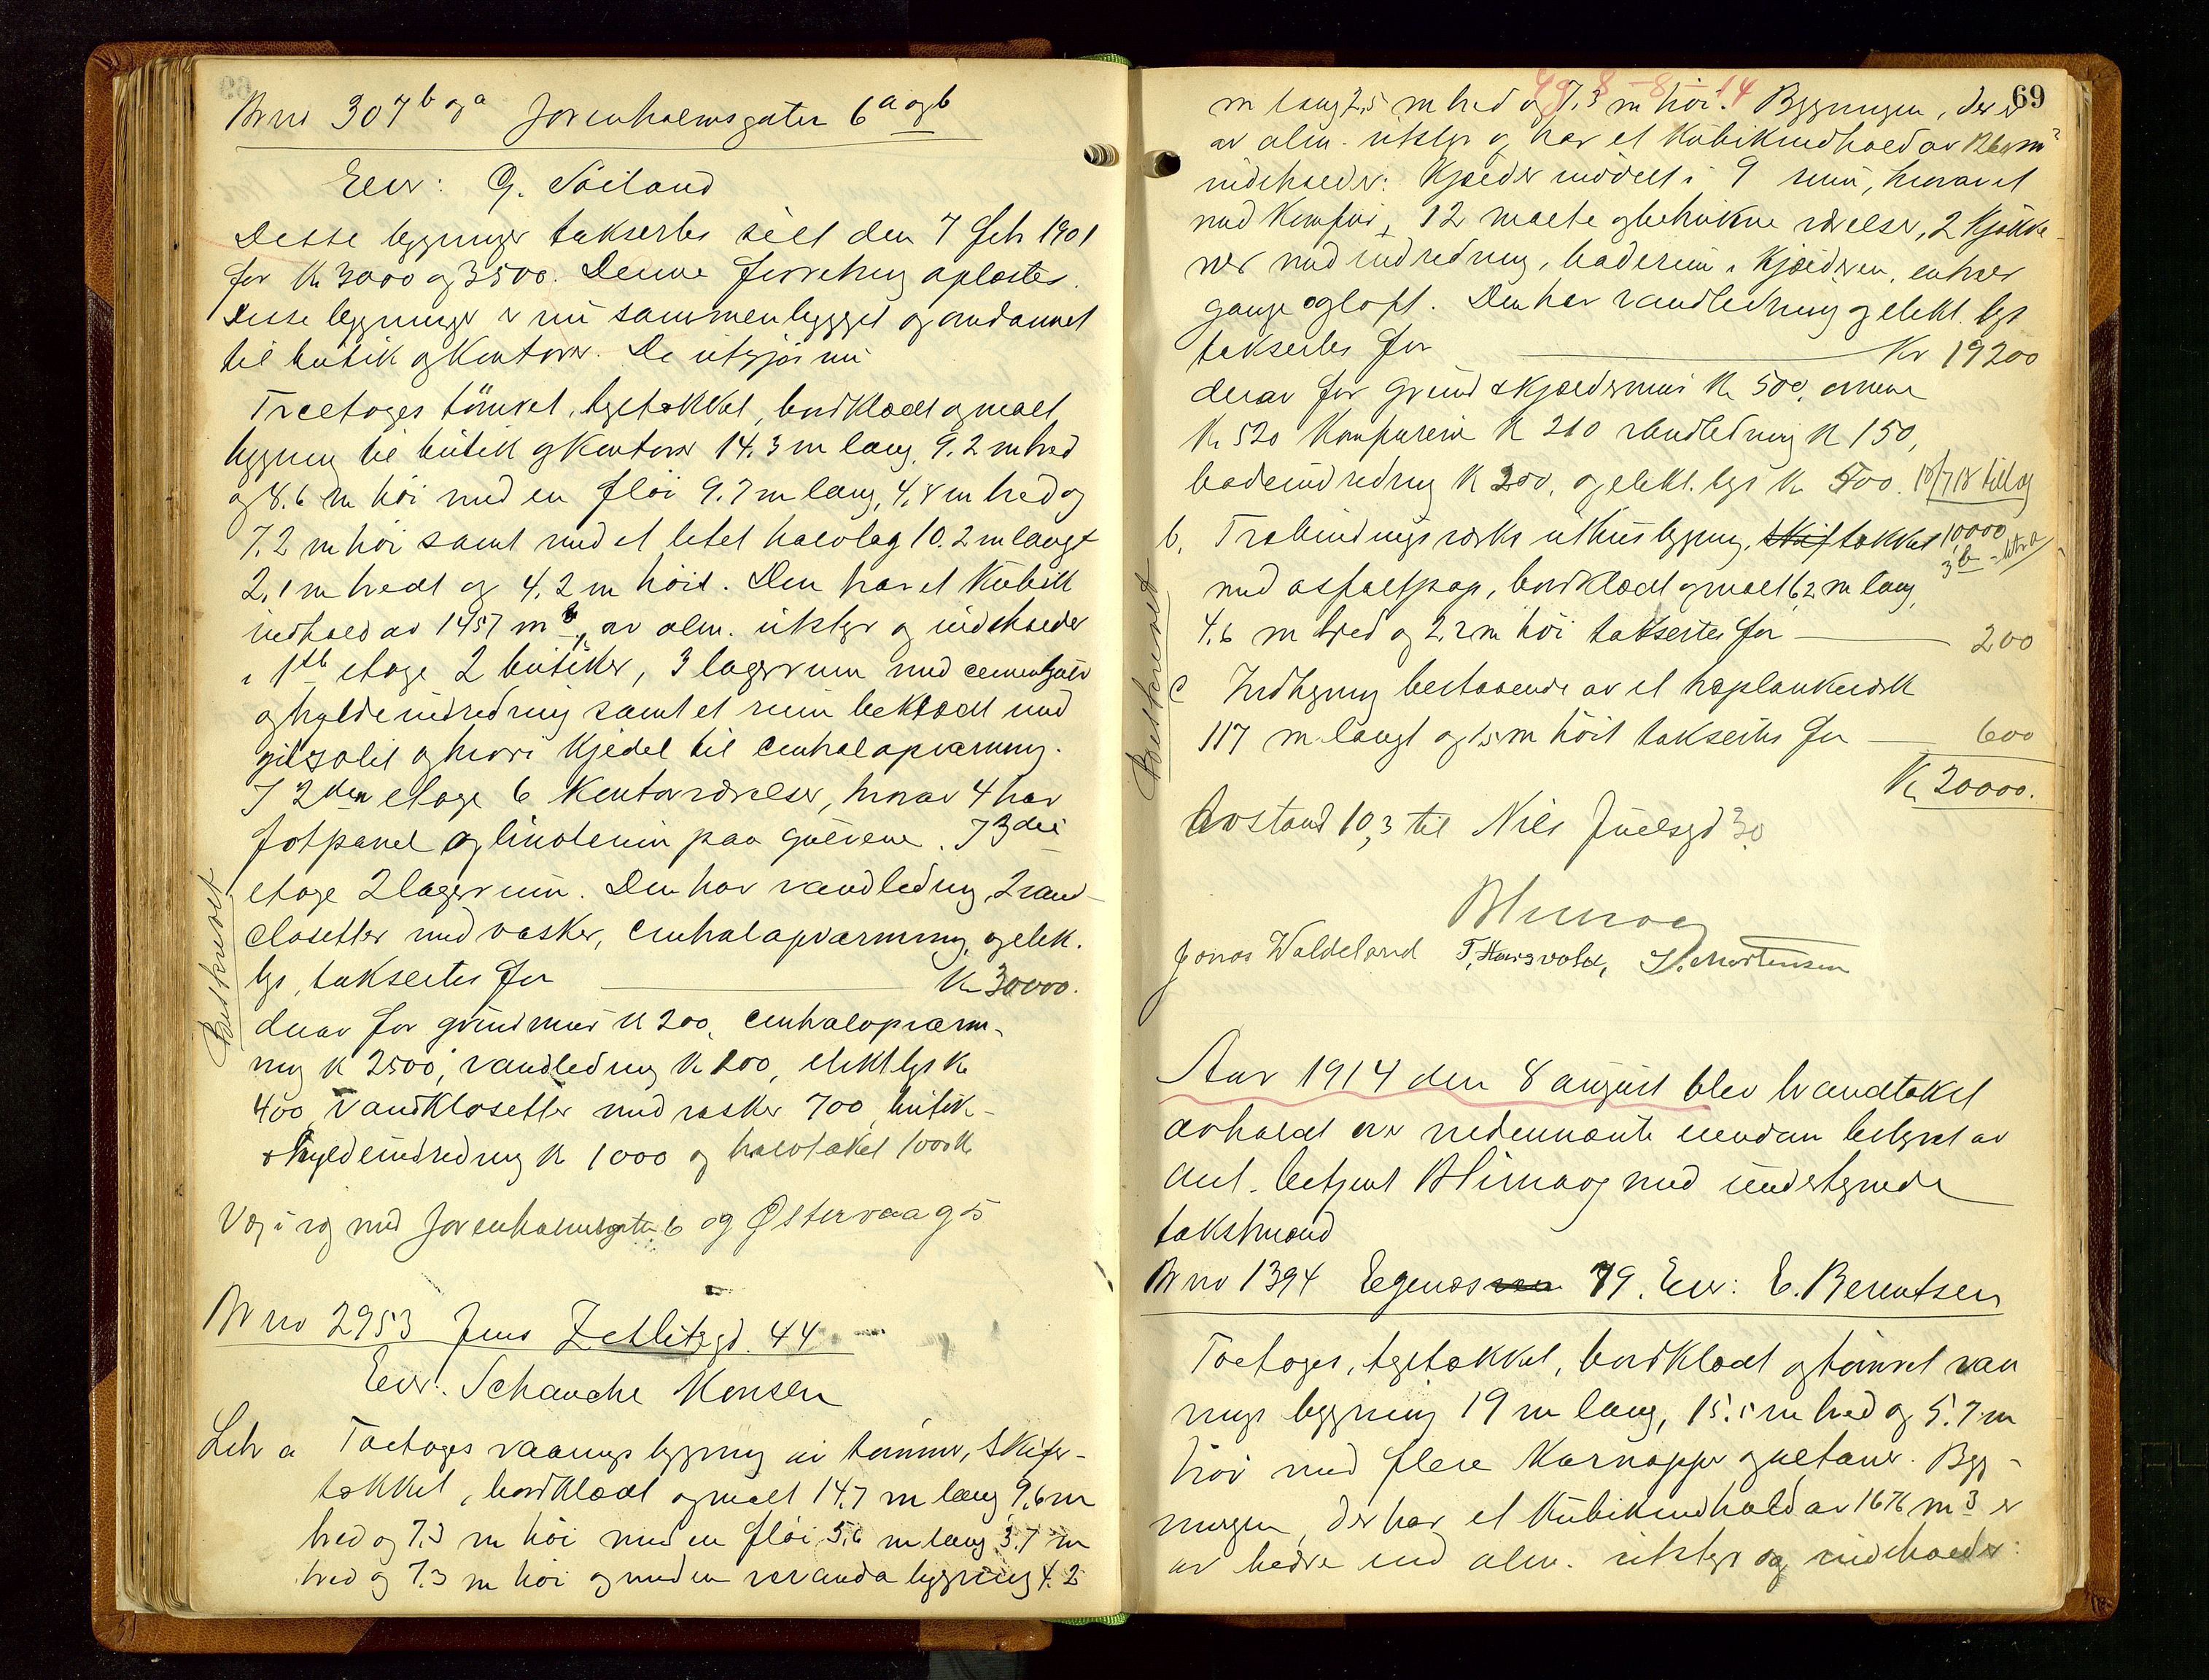 Br no 307 b og a Jorenholmsgaten 6 a og b
Eier: G. Söiland
Disse bygninger taksertes sidst den 7 feb 1901
for Kr 3000 og 3500. Denne forretning oplæstes.
Disse bygninger er nu sammenbygget og omdannet
til butik og Kontorer. De utgjør nu
Treetages tömret, tegltækket, bordklædt og malt
bygning til butik og Kontorer 14.3 m lang, 9.2 m bred
og 8.6 m höi med en flöi 9.7 m lang, 4,8 m bred og
7.2 m höi samt med et litet halvtag 10.2 m langt
2,1 m bredt og 4,2 m höit. Den har et Kubik
indhold av 1457 m³, av alm. utstyr og indeholder
i 1ste etage 2 butiker, 3 lagerrum med cementgulv
og hyldeindredning samt et rum beklædt med
gilsolit og hvori Kjedel til centralopvarmning.
I 2den etage 6 Kontorværelser, hvorav 4 har
fotpanel og linoleum paa gulvene. I 3die
etage 2 lagerrum. Den har vandledning, 2 vand-
closetter med vasker, centralopvarmning, og elek.
lys, takseres for Kr 30000.
derav for grundmur K 200, centralopvarm-
ning K 2500, vandledning K 200, elekt lys K
400, Vandklosetter med vasker 700, butik-
& hyldeindredning K 1000 og halvtaket 1000 K
Væg i væg med Jorenholmsgaten 6 og Østervaag 5
Br no 2953 Jens Zetlitzgd. 44
Eier: Schanche Monsen
Litr a Toetages vaaningsbygning av tömmer, skifer-
tækket, bordklædt og malt 14.7 m lang 9,6 m
bred og 7.3 m höi med en flöi 5,6 m lang 3.7 m
bred og 7.3 m höi og med en verandabygning 4.2
Bælkholdt
49 8-8-14
69
m lang 2,5 m bred og 7.3 m höi. Bygningen, der er
av alm. utstyr og har et Kubikindhold av m³
indeholder: Kjælder inddelt i 9 rum, hvorav et
med Komfur, 12 malte og betrukne værelser, 2 Kjökke-
ner med indredning, baderum i Kjælderen, entreer
gange og loft. Den har vandledning og elekt. lys
takseres for Kr 19200
derav for grund & kjældermur K 500, ovnene
K 520 Komfurene K 210 vandledning K 150,
badeindredning K 200, og elekt. lys K 500. 18/7 18 tillæg
b, Træbindingsværks uthusbygning, skif tækket 10000
3 b - litr a
med asfaltpap, bordklædt og malt 6,2 m lang,
4.6 m bred og 2.2 m höi takseres for 200
c Indhegning bestaaende av et høplankeværk
117 m langt og 1,5 m höit takseres for 600
Kr 20000.
Avstand 10,3 til Nils Juelsgd 30
Jonas Waldeland
Aar 1914 den 8 august blev brandtakst
avholdt over nedennævnte eiendom bestyret av
aut. betjent med undertegnede
takstmænd
Br no 1394 Egenæs 79. Eier: E. Berentsen
Toetages, tegltækket, bordklædt og tömret vaa
nings bygning 19 m lang, 15.5 m bred og 5.7 m
höi med flere Karnapper og altaner. Byg-
ningen, der har et Kubikindhold av 1676 m³ er
av bedre end alm. utstyr og indeholder: